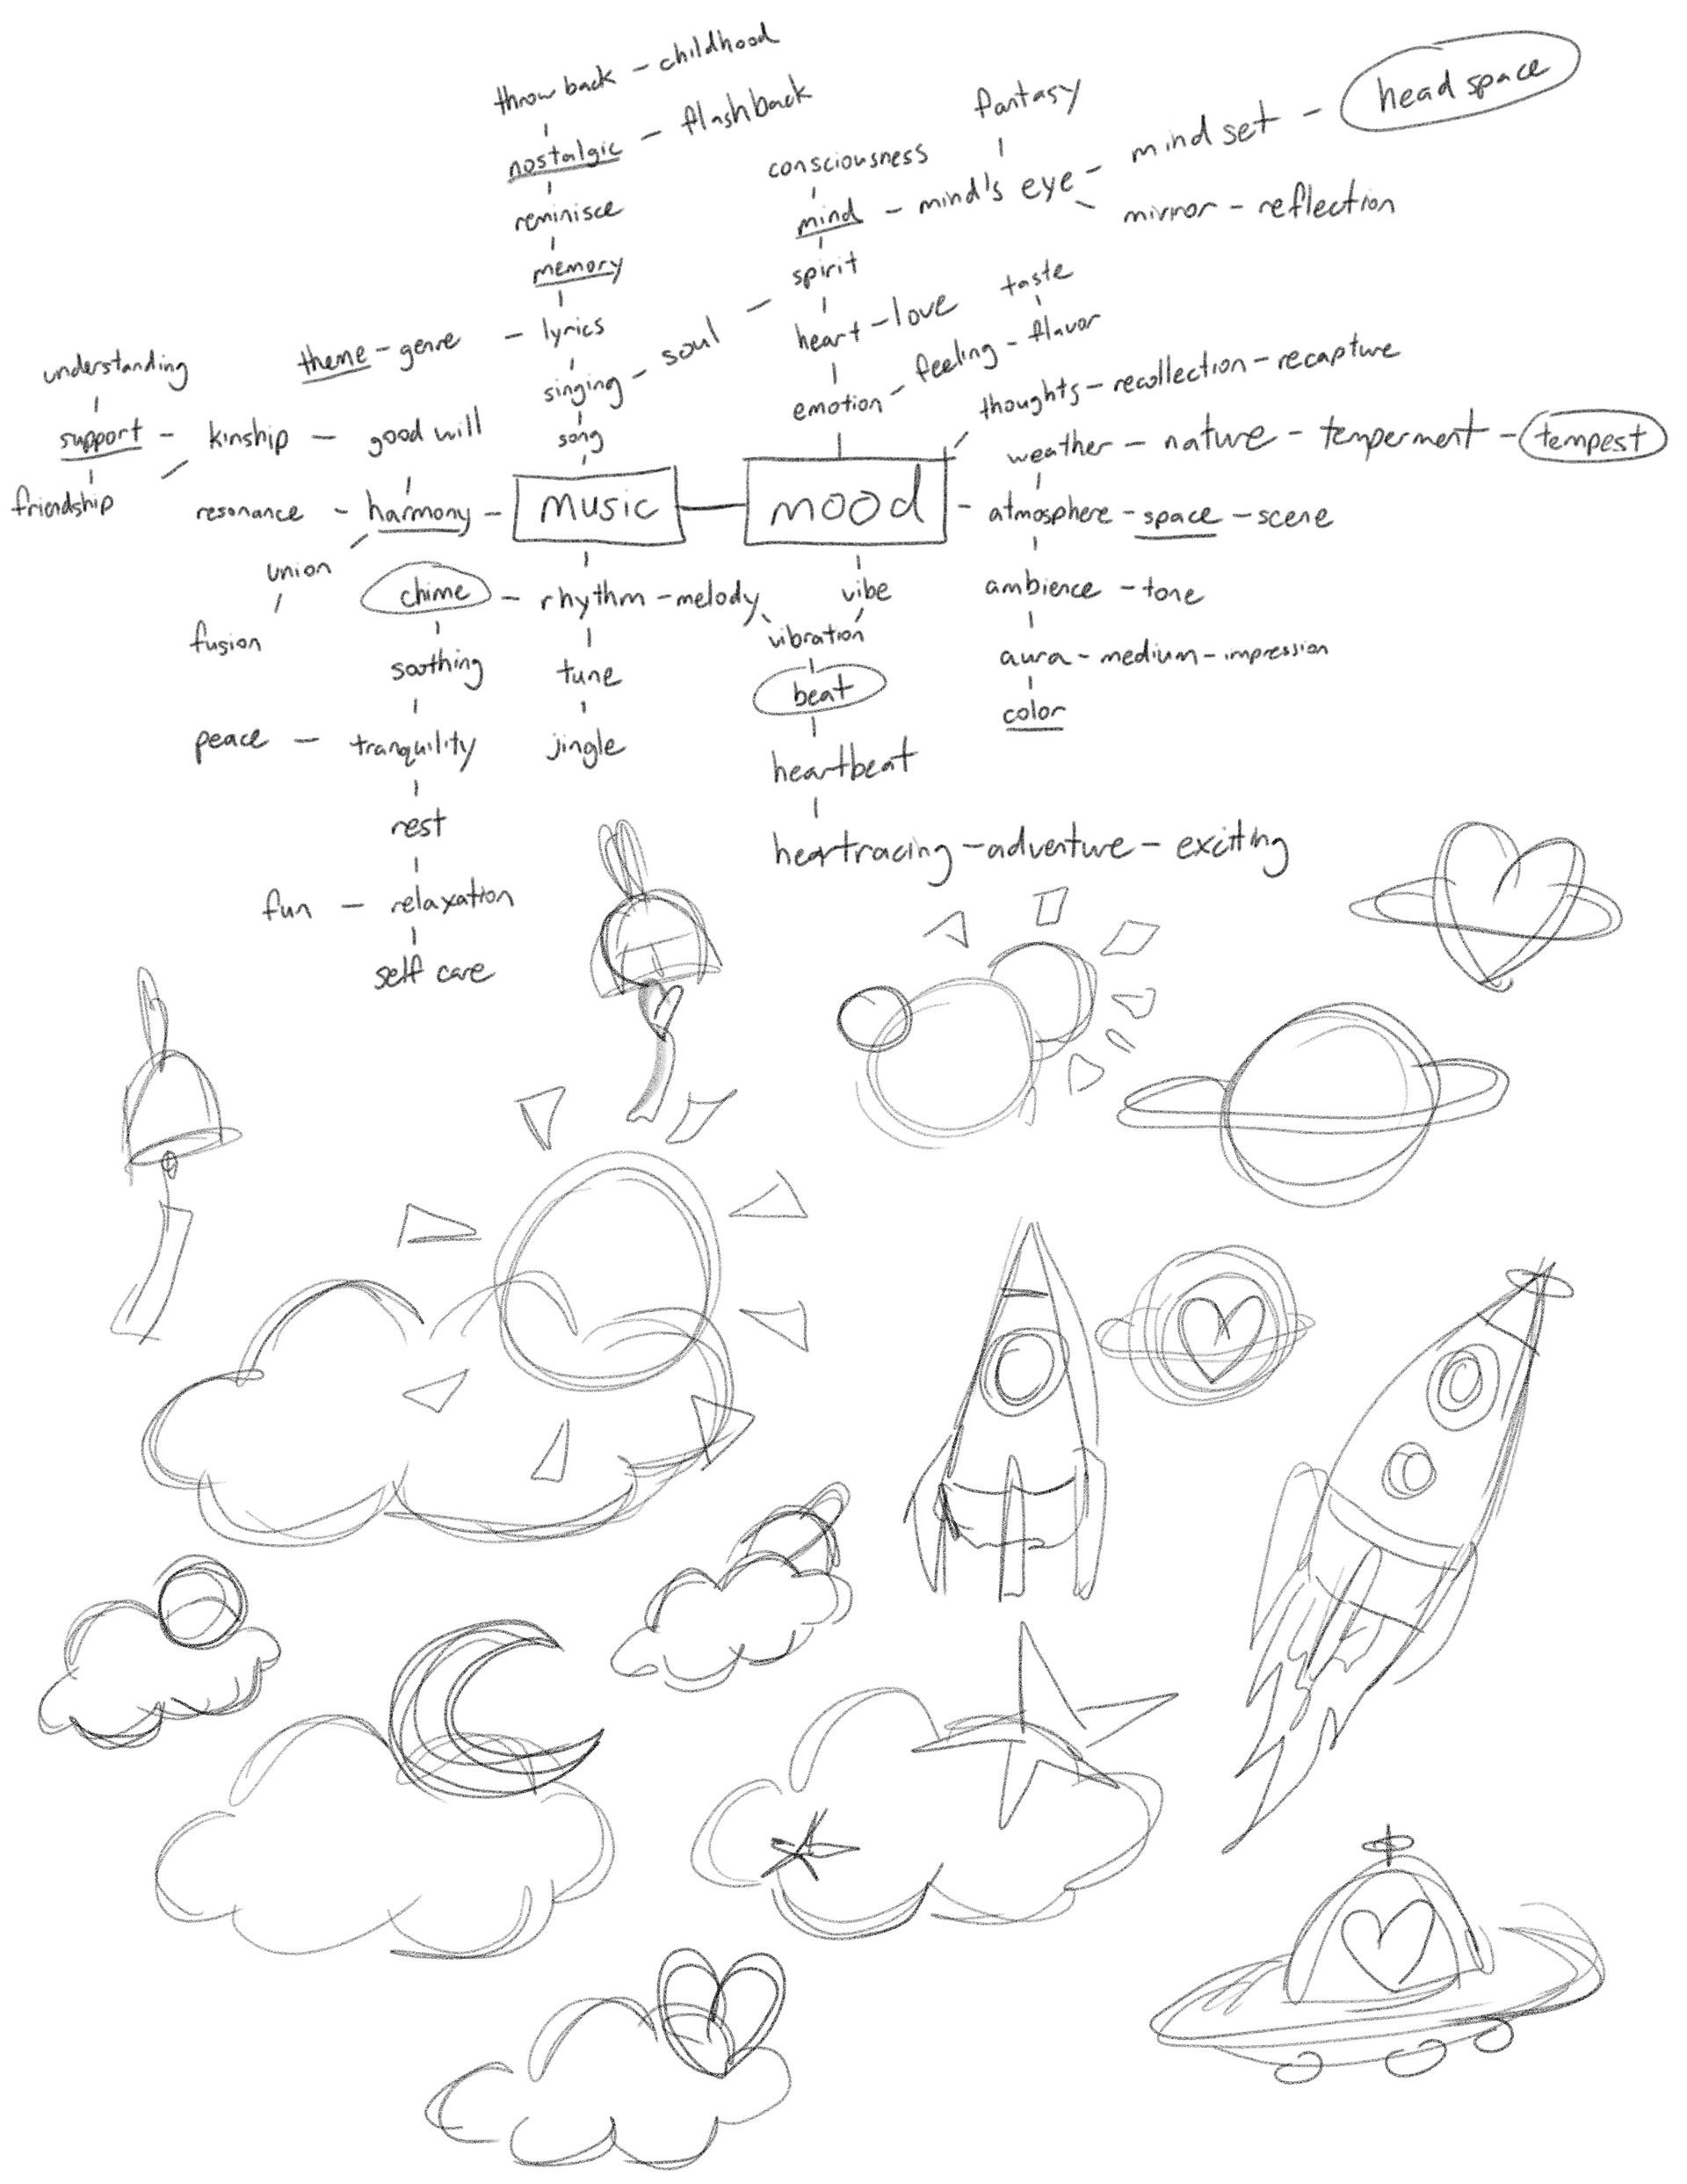 throwback - childhood
nostalgic - flashback
reminisce
memory
theme - genre - lyrics
singing - soul - spirit
song
fantasy
consciousness
mind - mind's eye - mind set - head space
mirror - reflection
spirit
heart - love
taste
emotion - feeling - flavor
thoughts - recollection - recapture
weather - nature - temperment - tempest
understanding
support - kinship - good will
friendship
resonance - harmony - MUSIC - mood - atmosphere - space - scene
union
fusion
chime - rhythm - melody
vibe
vibration
ambience - tone
soothing
tune
beat
aura - medium - impression
color
peace - tranquility
jingle
heartbeat
rest
heartracing - adventure - exciting
fun - relaxation
self care